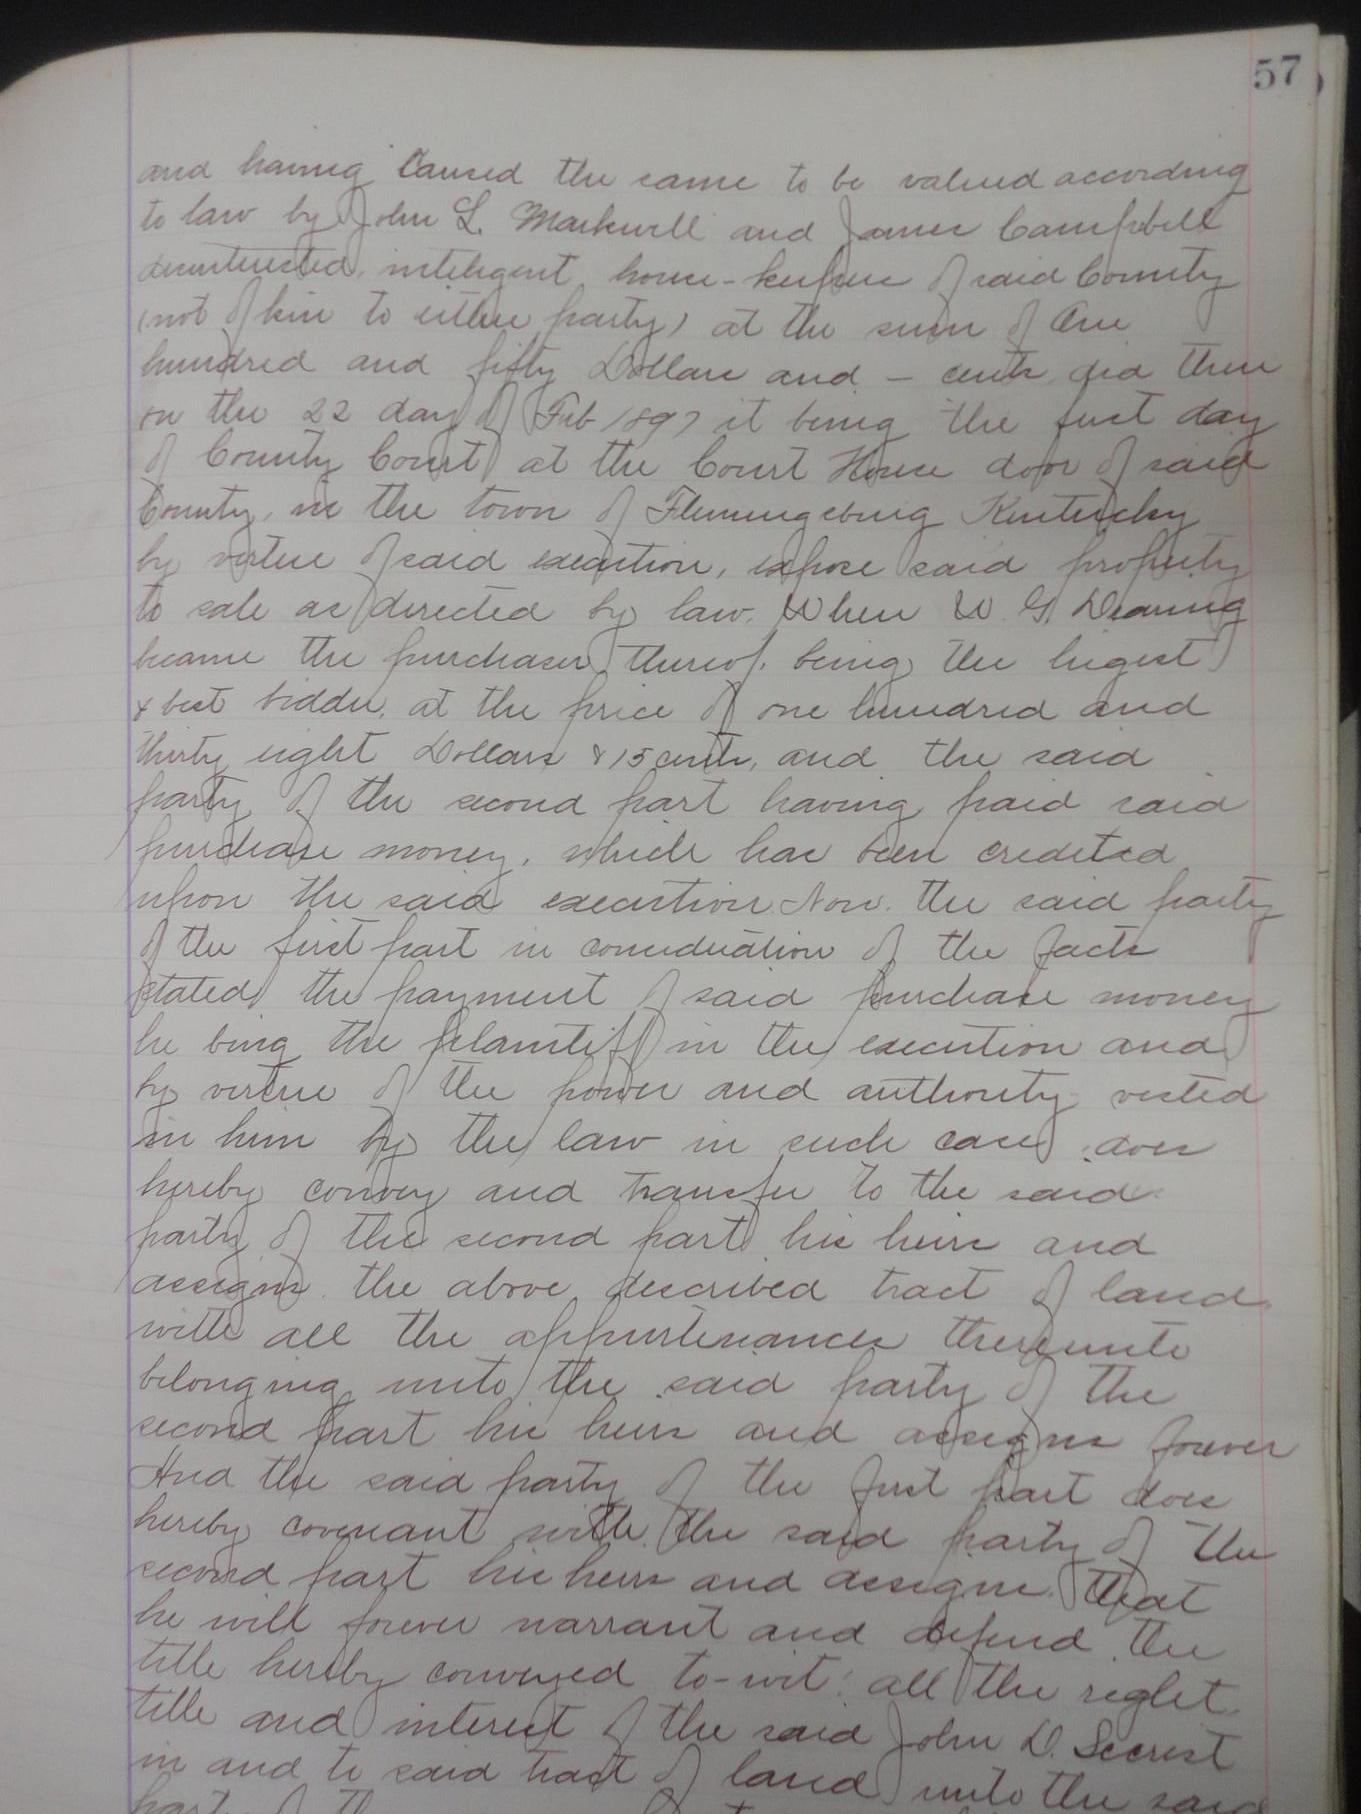 57
and having Caused the same to be valued according
to law by John L. Markwell and James Campbell
disinterested, inteligent house-keepers of said County
(not of kin to either party) at the sum of One
hundred and fifty Dollars and – cents did then
on the 22 day of Feb 1897 it being the first day
of County Court at the Court House door of said
County, in the town of Flemingsburg Kentucky
by virtue of said execution, expose said property
to sale as directed by law. When W. G. Dearing
became the purchaser thereof, being the higest
& best bidder, at the price of one hundred and
thirty eight Dollars & 15 cents, and the said
party of the second part having paid said
purchase money, which has been credited
upon the said execution Now. the said party
of the first part in consideration of the facts
stated the payment of said purchase money
he being the plaintiff in the execution and
by virtue of the power and authority vested
in him by the law in such cases does
hereby convey and transfer to the said
party of the second part his heirs and
assigns the above described tract of land
with all the appurtenances thereunto
belonging unto the said party of the
second part his heirs and assigns forever
And the said party of the first part does
hereby covenant with the said party of the
second part his heirs and assigns that
he will forever warrant and defend the
title hereby conveyed to-wit: all the right
title and interest of the said John D. Secrist
in and to said tract of land unto the said
party of the